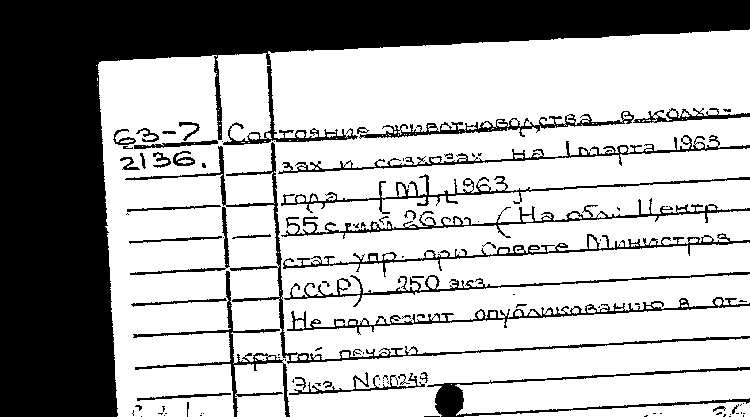 63-7 Состояние животноводства в колхо-
2136. зах и совхозах на 1 марта 1963
года. [М], [1963].
55 с. табл. 26 см. (На обл.: Центр.
стат. упр. при Совете Министров
СССР). 250 экз.
Не подлежит опубликованию в от-
крытой печати.
Экз. N 000249